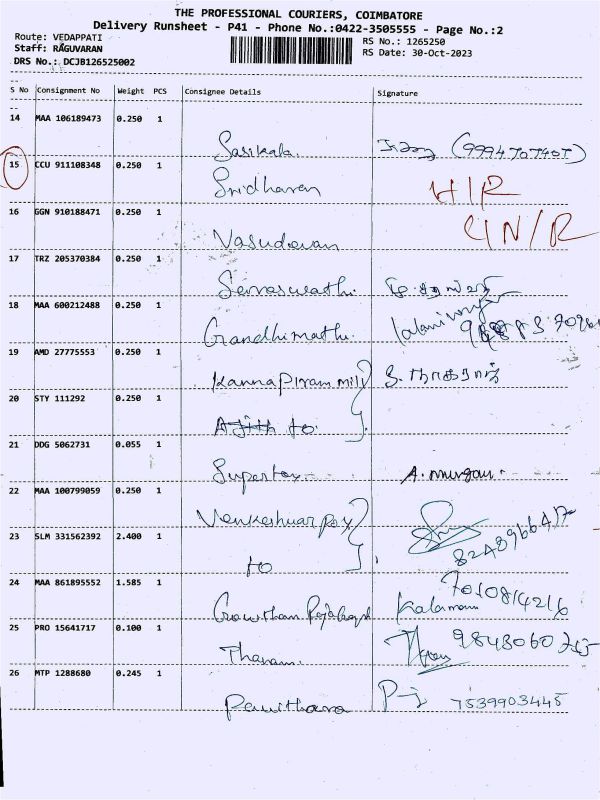 THE PROFESSIONAL COURIERS, COIMBATORE
Delivery Runsheet - P41 - Phone No.:0422-3505555 - Page No.:2
Route: VEDAPPATI
RS No.: 1265250
Staff: RAGUVARAN
RS Date: 30-Oct-2023
DRS No.: DCJB126525002
S No Consignment No Weight PCS Consignee Details Signature
14 MAA 106189473 0.250 1
Sasikala (9994707407)
15 CCU 911108348 0.250 1
Sridharan H/R
16 GGN 910188471 0.250 1
Vasudevan UN/R
17 TRZ 205370384 0.250 1
Saraswathi
18 MAA 600212488 0.250 1
Gandhimathi
19 AMD 27775553 0.250 1
Kannapiran mill
20 STY 111292 0.250 1
to
21 DDG 5062731 0.055 1
Supertex A. murgan
22 MAA 100799059 0.250 1
Venkeshwar
23 SLM 331562392 2.400 1
to
24 MAA 861895552 1.585 1
Gowtham Kalamani 7010814216
25 PRO 15641717 0.100 1
Tharani
26 MTP 1288680 0.245 1
Pavithara P-j 7539903445